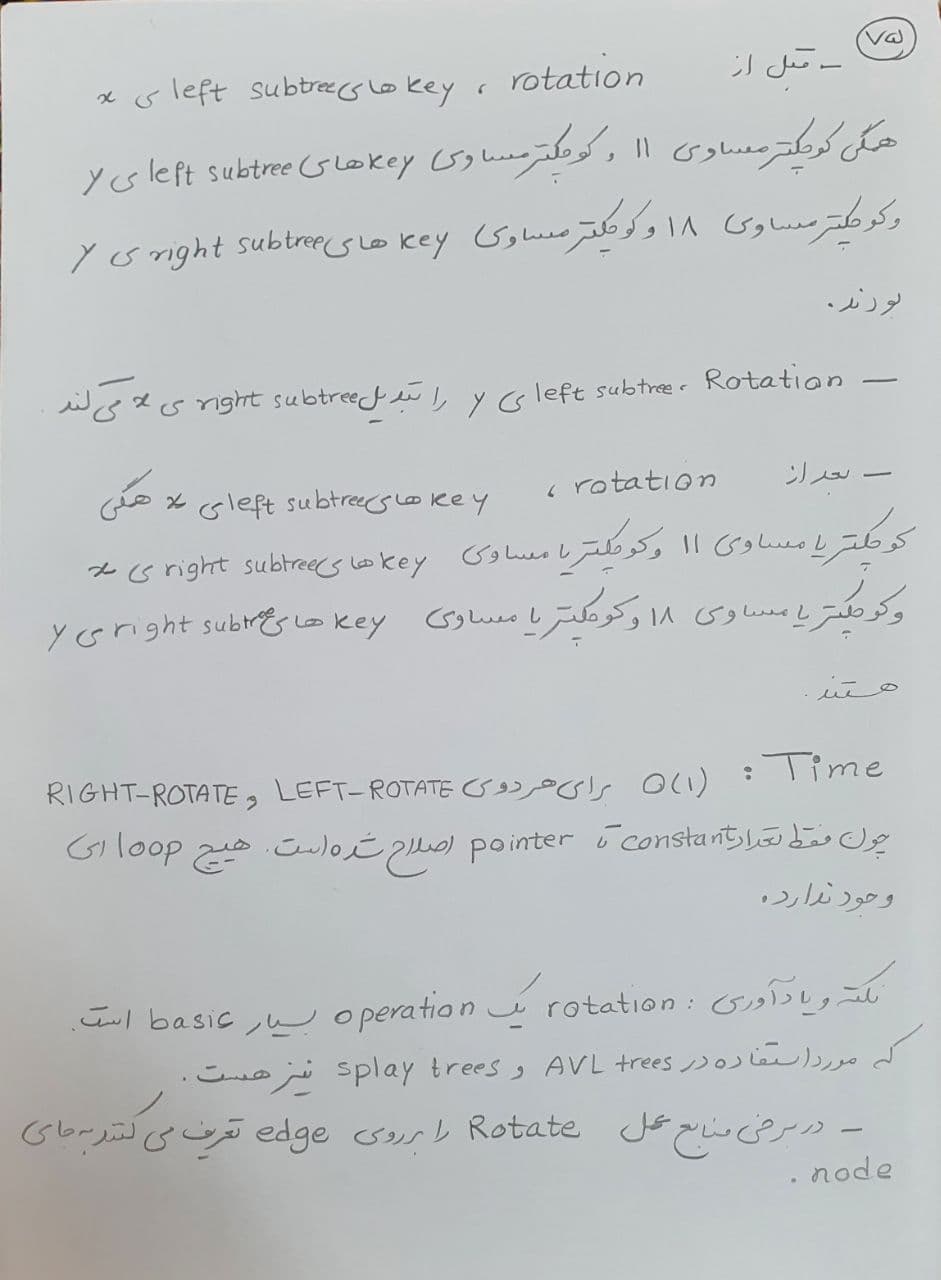 ۷۵
– قبل از rotation ، key های left subtree ی x
همگی کوچکتر مساوی ۱۱ و کوچکتر مساوی key های left subtree ی y
و کوچکتر مساوی ۱۸ و کوچکتر مساوی key های right subtree ی y
بودند.
– Rotation ، left subtree ی y را تبدیل right subtree ی x می‌کند.
– بعد از rotation ، key های left subtree ی x همگی
کوچکتر یا مساوی ۱۱ و کوچکتر یا مساوی key های right subtree ی x
و کوچکتر یا مساوی ۱۸ و کوچکتر یا مساوی key های right subtree ی y
هستند.
Time : O(1) برای هر دوی LEFT-ROTATE و RIGHT-ROTATE
چون فقط تعداد constant تا pointer اصلاح شده است. هیچ loop ای
وجود ندارد.
نکته و یادآوری : rotation یک operation بسیار basic است.
که مورد استفاده در AVL trees و splay trees نیز هست.
– در برخی منابع عمل Rotate را برروی edge تعریف می کنند به جای
node .